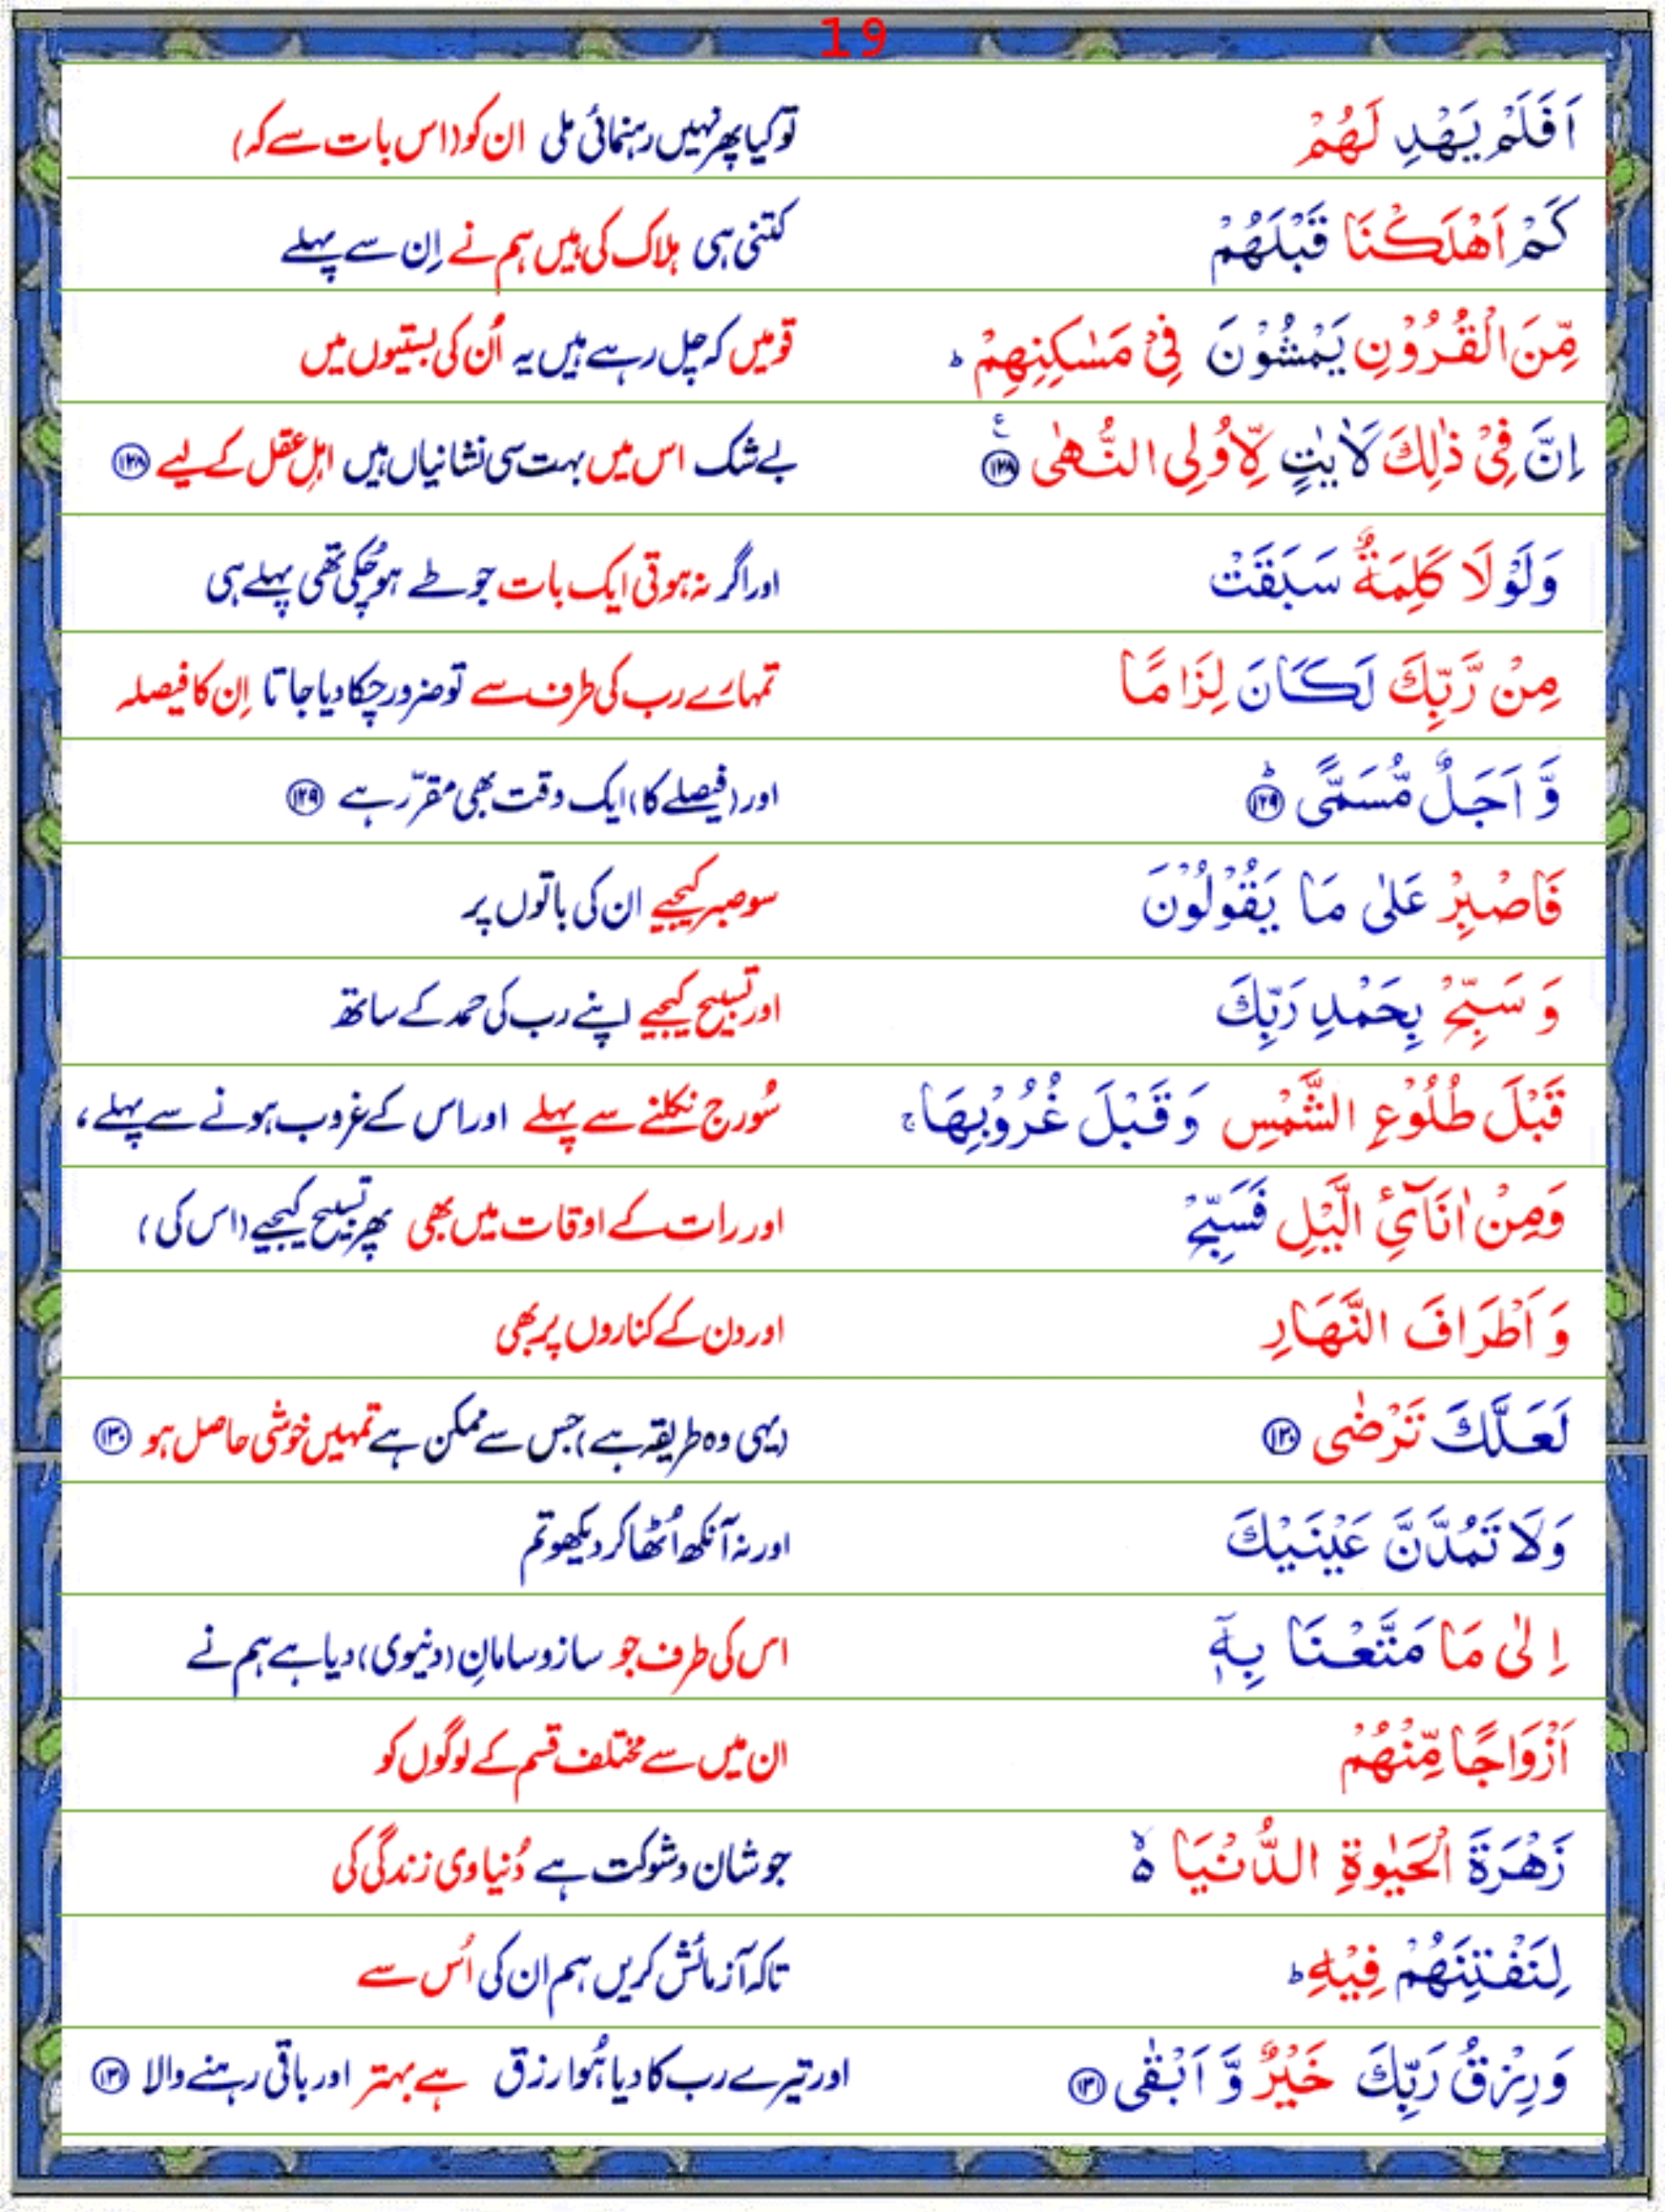 19
اَفَلَمْ يَهْدِ لَهُمْ توکیا پھر نہیں رہنمائی ملی ان کو (اس بات سے کہ)
كَمْ اَهْلَكْنَا قَبْلَهُمْ کتنی ہی ہلاک کی ہیں ہم نے اِن سے پہلے
مِّنَ الْقُرُوْنِ يَمْشُوْنَ فِيْ مَسٰكِنِهِمْ ؕ قومیں کہ چل رہے ہیں یہ اُن کی بستیوں میں
اِنَّ فِيْ ذٰلِكَ لَاٰيٰتٍ لِّاُولِى النُّهٰى ۧ ﴿۱۲۸﴾ بے شک اس میں بہت سی نشانیاں ہیں اہلِ عقل کے لیے ﴿۱۲۸﴾
وَلَوْلَا كَلِمَةٌ سَبَقَتْ اور اگر نہ ہوتی ایک بات جو طے ہو چُکی تھی پہلے ہی
مِنْ رَّبِّكَ لَكَانَ لِزَامًا تمہارے رب کی طرف سے تو ضرور چکا دیا جاتا اِن کا فیصلہ
وَّ اَجَلٌ مُّسَمًّى ؕ ﴿۱۲۹﴾ اور (فیصلے کا) ایک وقت بھی مقرّر ہے ﴿۱۲۹﴾
فَاصْبِرْ عَلٰى مَا يَقُوْلُوْنَ سو صبر کیجیے ان کی باتوں پر
وَ سَبِّحْ بِحَمْدِ رَبِّكَ اور تسبیح کیجیے اپنے رب کی حمد کے ساتھ
قَبْلَ طُلُوْعِ الشَّمْسِ وَ قَبْلَ غُرُوْبِهَا ۚ سُورج نکلنے سے پہلے اور اس کے غروب ہونے سے پہلے،
وَمِنْ اٰنَآئِ الَّيْلِ فَسَبِّحْ اور رات کے اوقات میں بھی پھر تسبیح کیجیے (اس کی)
وَ اَطْرَافَ النَّهَارِ اور دن کے کناروں پر بھی
لَعَلَّكَ تَرْضٰى ﴿۱۳۰﴾ (یہی وہ طریقہ ہے) جس سے ممکن ہے تمہیں خوشی حاصل ہو ﴿۱۳۰﴾
وَلَا تَمُدَّنَّ عَيْنَيْكَ اور نہ آنکھ اُٹھا کر دیکھو تم
اِلٰى مَا مَتَّعْنَا بِهٖٓ اس کی طرف جو سازوسامانِ (دنیوی) دیا ہے ہم نے
اَزْوَاجًا مِّنْهُمْ ان میں سے مختلف قسم کے لوگوں کو
زَهْرَةَ الْحَيٰوةِ الدُّنْيَا ۙ۬ جو شان و شوکت ہے دُنیاوی زندگی کی
لِنَفْتِنَهُمْ فِيْهِ ؕ تاکہ آزمائش کریں ہم ان کی اُس سے
وَرِزْقُ رَبِّكَ خَيْرٌ وَّ اَبْقٰى ﴿۱۳۱﴾ اور تیرے رب کا دیا ہُوا رزق ہے بہتر اور باقی رہنے والا ﴿۱۳۱﴾